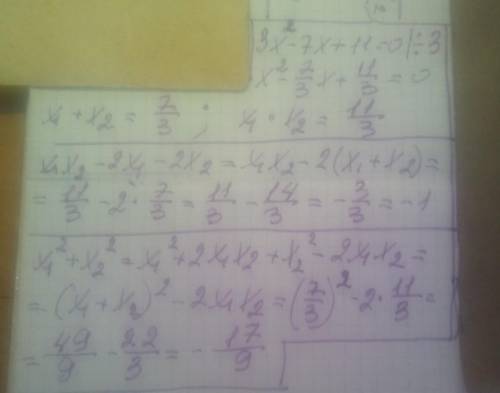 3x² - 7x + 11 = 0 | ÷ 3
x² - 7/3 x + 11/3 = 0
x₁ + x₂ = 7/3 ; x₁ · x₂ = 11/3
x₁x₂ - 2x₁ - 2x₂ = x₁x₂ - 2(x₁ + x₂) =
= 11/3 - 2 · 7/3 = 11/3 - 14/3 = - 3/3 = -1
x₁² + x₂² = x₁² + 2x₁x₂ + x₂² - 2x₁x₂ =
= (x₁ + x₂)² - 2x₁x₂ = (7/3)² - 2 · 11/3 =
= 49/9 - 22/3 = - 17/9